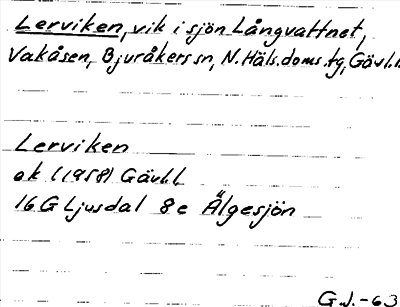 Lerviken, vik i sjön Långvattnet,
Vakåsen, Bjuråkers sn, N. Häls. doms. tg, Gävl.l.
Lerviken
ek (1958) Gävl.l.
16G Ljusdal 8e Älgesjön
G.J.-63